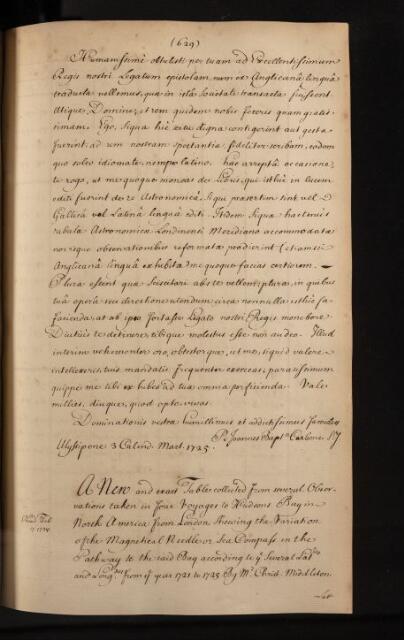 (629)
Humanissimè obtulisti per tuam ad Excellentissimum
Regis nostri Legatum epistolam, num ex Anglicana linguâ
traducta vellemus, quæ in istâ Societate transacta fuissent
Utique, Domine, et rem quidem nobis feceris quam gratis=
simam. Ego, siqua hic scitu digna contigerint aut gesta
fuerint ad rem nostram spectantia fideliter scribam, eodem
quo soleo idiomate, nempe latino. hac arreptâ occasione,
te rogo, ut me quoque moneas de libris, qui isthic in lucem
editi fuerint de re Astronomicâ, siqui præsertim sint vel
Gallicâ vel Latinâ linguâ editi. Itidem siqua hactenus
tabula Astronomica Londinensi Meridiano accommodata
novisque observationibus reformata prodierint (etiamsi
Anglicanâ linguâ exhibita) me quoque facias certiorem.
Plura essent quæ sciscitari abs te vellem, plura, in quibus
tuâ operâ seu directione utendum circa nonnulla isthic fa=
facienda, at ab ipso fortasse Legato nostri Regis monebere.
Diutius te detinere, tibique molestus esse non audeo. Illud
interim vehementer oro, obtestorque, ut me, siquid valere
intellexeris, tuis mandatis frequenter exerceas, paratissimum
quippe me tibi exhibes ad tua omnia perficienda. Vale
millies, diuque, quod opto vivas.
Dominationis vestræ humillimus et addictissimus famulus
P. Joannes Bapt. Carbone SJ
Ulyssipone 3 Calend. Mart. 1725.
A New and exact Table collected from several Obser-
vations taken in four Voyages to Hudsons Bay in
North America from London Shewing the Variation
of the Magnetical Needle or Sea Compass in the
Pathway to the said Bay according to ye Several Latdes
and Longdes from ye year 1721 to 1725 By Mr. Christ. Middleton.